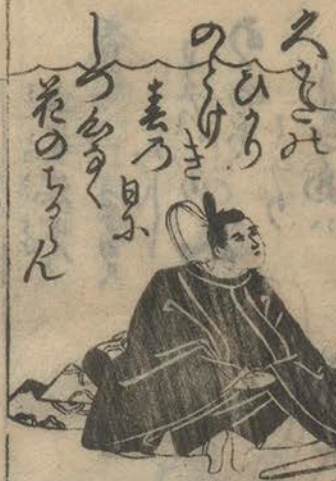 久かたの
ひかり
のとけき
春乃
日に
しつ心なく
花のちるらん